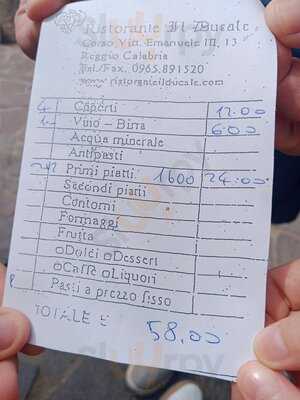 Ristorante Il Ducale
Corso Vitt. Emanuele III, 13
Reggio Calabria
Tel./Fax. 0965.891520
www.ristoranteilducale.com
4 Coperti 12.00
Vino - Birra 6.00
Acqua minerale
Antipasti
Primi piatti 1600 24.00
Secondi piatti
Contorni
Formaggi
Frutta
Dolci Dessert
Caffè Liquori
Pasti a prezzo fisso
TOTALE £ 58.00